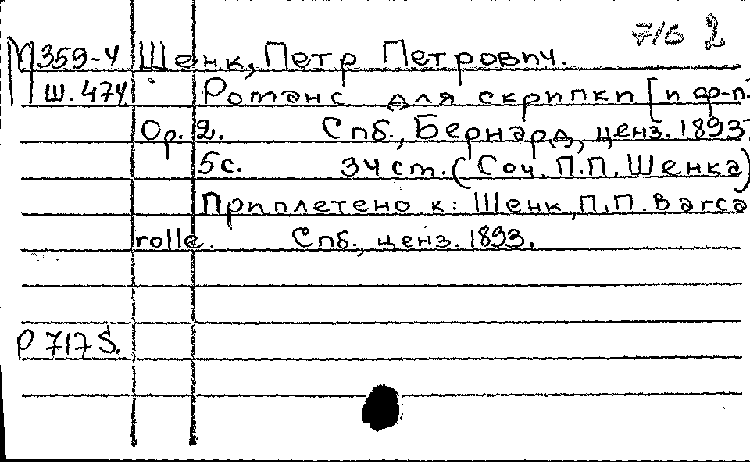 7/6 2
М359-4 Шенк, Петр Петрович.
Ш.474 Романс для скрипки [и ф-п.
Op. 2. Спб., Бернард, ценз. 1893.
5с. 34 ст. (Соч. П.П. Шенка)
Приплетено к: Шенк, П.П. Barca
rolle. Спб., ценз. 1893.
Р 717 S.